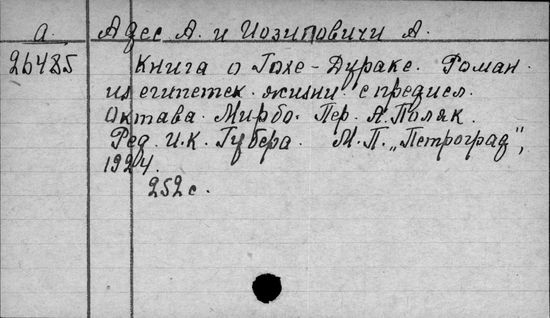 а. Адес А. и Иозиповичи А.
26485 Книга о Гохе-Дураке. Роман
из египетск. жизни с предисл.
Октава Мирбо. Пер. А. Поляк.
Ред. И.К. Губера. М.П. „Петроград",
1924.
252 с.